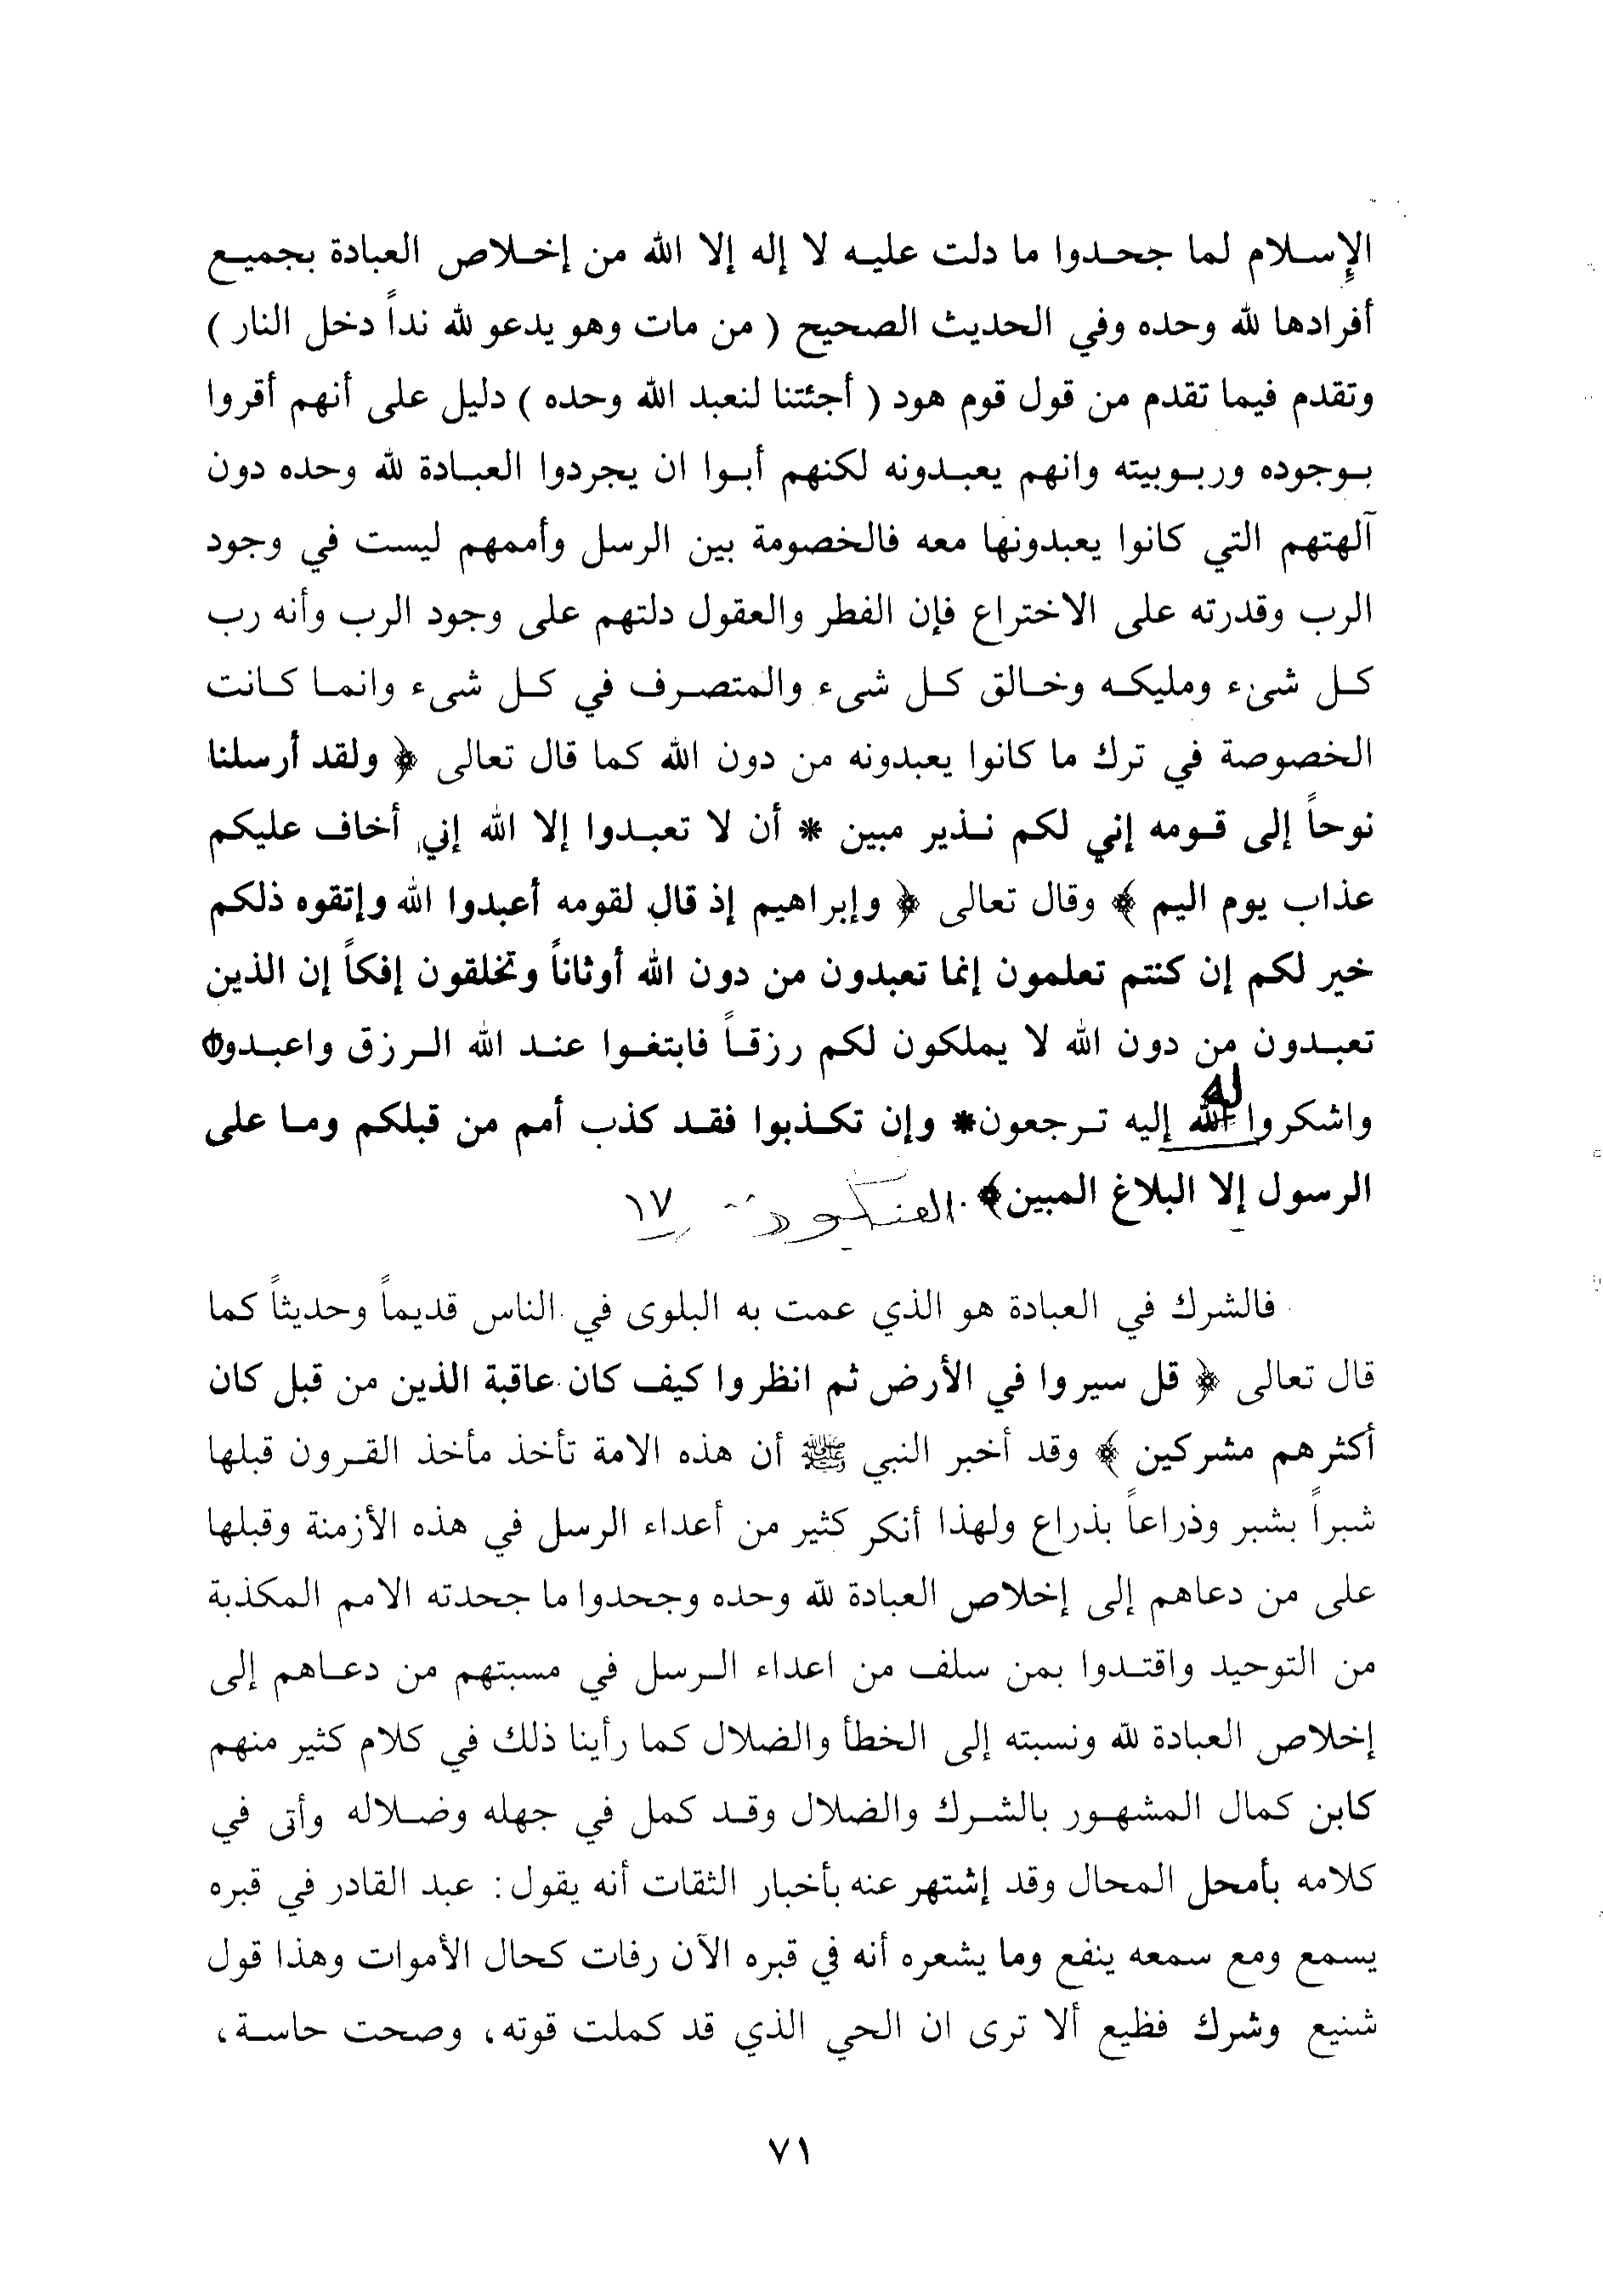 الإسلام لما جحدوا ما دلت عليه لا إله إلا الله من إخلاص العبادة بجميع
أفرادها لله وحده وفي الحديث الصحيح ( من مات وهو يدعو لله نداً دخل النار )
وتقدم فيما تقدم من قول قوم هود ( أجئتنا لنعبد الله وحده ) دليل على أنهم أقروا
بوجوده وربوبيته وانهم يعبدونه لكنهم أبوا ان يجردوا العبادة لله وحده دون
آلهتهم التي كانوا يعبدونها معه فالخصومة بين الرسل وأممهم ليست في وجود
الرب وقدرته على الاختراع فإن الفطر والعقول دلتهم على وجود الرب وأنه رب
كل شىء ومليكه وخالق كل شىء والمتصرف في كل شىء وانما كانت
الخصوصة في ترك ما كانوا يعبدونه من دون الله كما قال تعالى ﴿ ولقد أرسلنا
نوحاً إلى قومه إني لكم نذير مبين * أن لا تعبدوا إلا الله إني أخاف عليكم
عذاب يوم اليم ﴾ وقال تعالى ﴿ وإبراهيم إذ قال لقومه أعبدوا الله وإتقوه ذلكم
خير لكم إن كنتم تعلمون إنما تعبدون من دون الله أوثاناً وتخلقون إفكاً إن الذين
تعبدون من دون الله لا يملكون لكم رزقاً فابتغوا عند الله الرزق واعبدوه
له
واشكروا الله إليه ترجعون* وإن تكذبوا فقد كذب أمم من قبلكم وما على
الرسول إلا البلاغ المبين﴾ . العنكبوت ١٧
فالشرك في العبادة هو الذي عمت به البلوى في الناس قديماً وحديثاً كما
قال تعالى ﴿ قل سيروا في الأرض ثم انظروا كيف كان عاقبة الذين من قبل كان
أكثرهم مشركين ﴾ وقد أخبر النبي ﷺ أن هذه الامة تأخذ مأخذ القرون قبلها
شبراً بشبر وذراعاً بذراع ولهذا أنكر كثير من أعداء الرسل في هذه الأزمنة وقبلها
على من دعاهم إلى إخلاص العبادة لله وحده وجحدوا ما جحدته الامم المكذبة
من التوحيد واقتدوا بمن سلف من اعداء الرسل في مسبتهم من دعاهم إلى
إخلاص العبادة لله ونسبته إلى الخطأ والضلال كما رأينا ذلك في كلام كثير منهم
كابن كمال المشهور بالشرك والضلال وقد كمل في جهله وضلاله وأتى في
كلامه بأمحل المحال وقد إشتهر عنه بأخبار الثقات أنه يقول : عبد القادر في قبره
يسمع ومع سمعه ينفع وما يشعره أنه في قبره الآن رفات كحال الأموات وهذا قول
شنيع وشرك فظيع ألا ترى ان الحي الذي قد كملت قوته، وصحت حاسة،
٧١